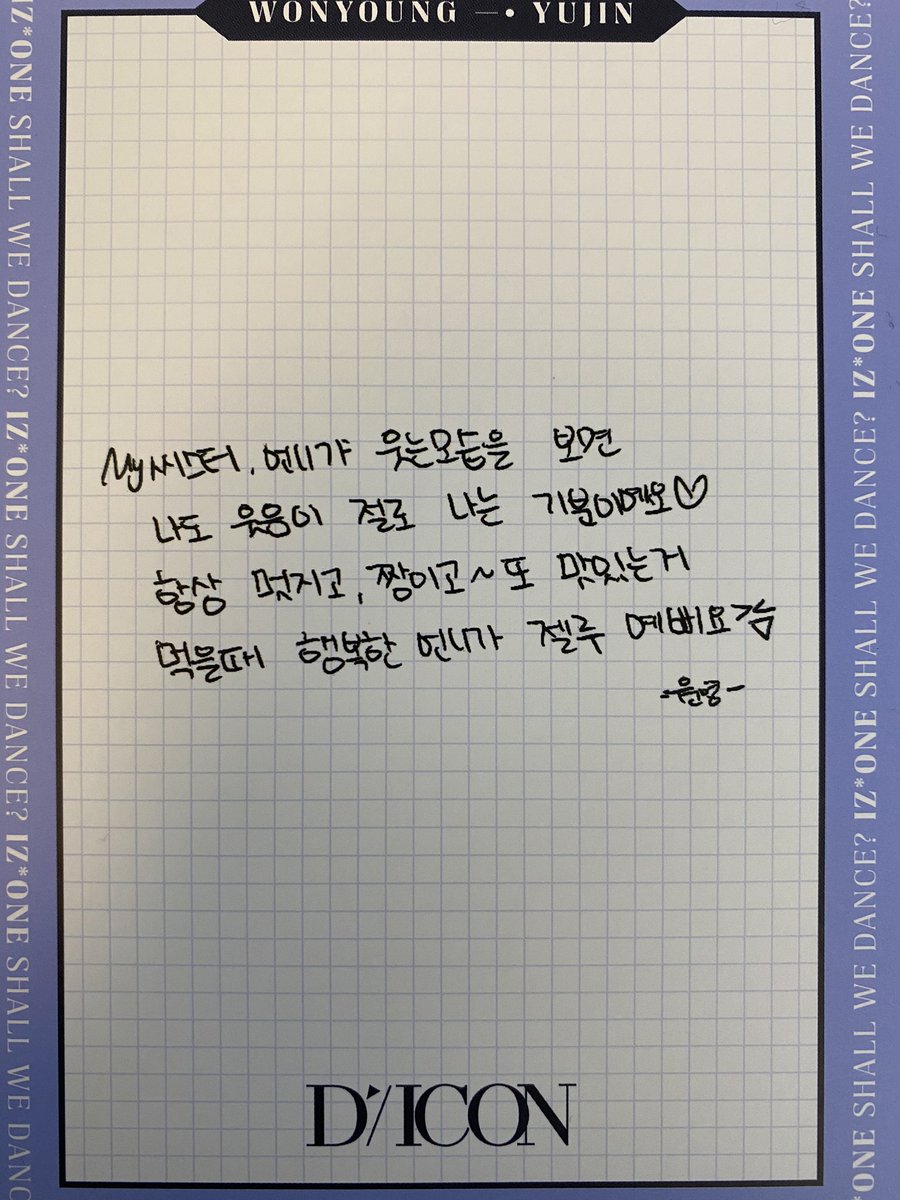 WONYOUNG —• YUJIN
IZ*ONE SHALL WE DANCE? IZ*ONE SHALL WE DANCE? IZ*ONE SHALL WE DANCE
My씨스터, 언니가 웃는모습을 보면
나도 웃음이 절로 나는 기분이예요♡
항상 멋지고, 짱이고~ 또 맛있는거
먹을때 행복한 언니가 젤루 예뻐요
-원영-
D'/ICON
IZ*ONE SHALL WE DANCE? IZ*ONE SHALL WE DANCE? IZ*ONE SHALL WE DANCE?